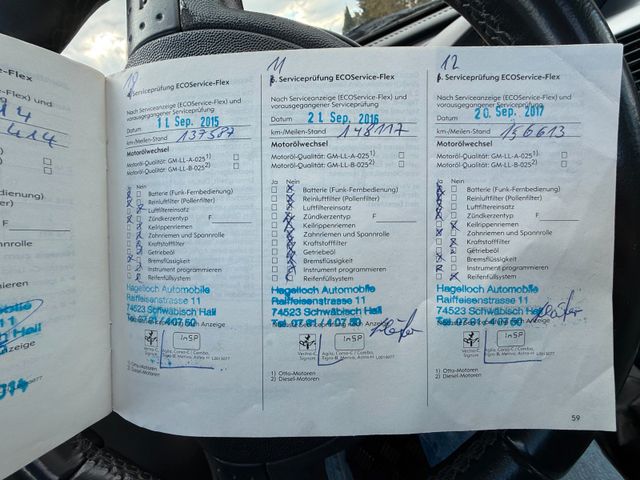 10
Serviceprüfung ECOService-Flex
Nach Serviceanzeige (ECOService-Flex) und
vorausgegangener Serviceprüfung
11 Sep. 2015
Datum
km-/Meilen-Stand 137587
Motorölwechsel
Motoröl-Qualität: GM-LL-A-025 1)
Motoröl-Qualität: GM-LL-B-025 2)
Ja Nein
Batterie (Funk-Fernbedienung)
Reinluftfilter (Pollenfilter)
Luftfiltereinsatz
Zündkerzentyp F
Keilrippenriemen
Zahnriemen und Spannrolle
Kraftstofffilter
Getriebeöl
Bremsflüssigkeit
Instrument programmieren
Reifenfüllsystem
Hagelloch Automobile
Raiffeisenstrasse 11
74523 Schwäbisch Hall
InSP
Agila, Corsa-C / Combo,
1) Otto-Motoren
2) Diesel-Motoren
11
Serviceprüfung ECOService-Flex
Nach Serviceanzeige (ECOService-Flex) und
vorausgegangener Serviceprüfung
21 Sep. 2016
Datum
km-/Meilen-Stand 148117
Motorölwechsel
Motoröl-Qualität: GM-LL-A-025 1)
Motoröl-Qualität: GM-LL-B-025 2)
Ja Nein
Batterie (Funk-Fernbedienung)
Reinluftfilter (Pollenfilter)
Luftfiltereinsatz
Zündkerzentyp F
Keilrippenriemen
Zahnriemen und Spannrolle
Kraftstofffilter
Getriebeöl
Bremsflüssigkeit
Instrument programmieren
Reifenfüllsystem
Hagelloch Automobile
Raiffeisenstrasse 11
74523 Schwäbisch Hall
InSP
Agila, Corsa-C / Combo,
1) Otto-Motoren
2) Diesel-Motoren
12
Serviceprüfung ECOService-Flex
Nach Serviceanzeige (ECOService-Flex) und
vorausgegangener Serviceprüfung
20. Sep. 2017
Datum
km-/Meilen-Stand 156613
Motorölwechsel
Motoröl-Qualität: GM-LL-A-025 1)
Motoröl-Qualität: GM-LL-B-025 2)
Ja Nein
Batterie (Funk-Fernbedienung)
Reinluftfilter (Pollenfilter)
Luftfiltereinsatz
Zündkerzentyp F
Keilrippenriemen
Zahnriemen und Spannrolle
Kraftstofffilter
Getriebeöl
Bremsflüssigkeit
Instrument programmieren
Reifenfüllsystem
Hagelloch Automobile
Raiffeisenstrasse 11
74523 Schwäbisch Hall
InSP
Agila, Corsa-C / Combo,
1) Otto-Motoren
2) Diesel-Motoren
59